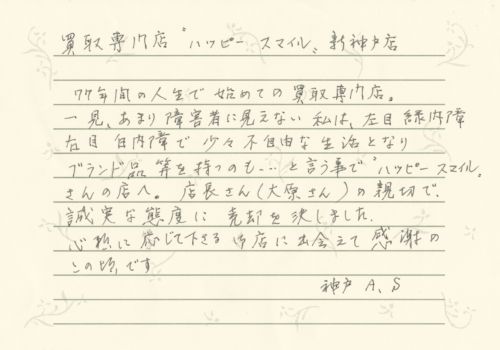 買取専門店〝ハッピースマイル〟新神戸店
77年間の人生で始めての買取専門店。
一見、あまり障害者に見えない私は、左目緑内障
右目白内障で少々不自由な生活となり
ブランド品等を持つのも…と言う事で〝ハッピースマイル〟
さんの店へ。店長さん(大原さん)の親切で、
誠実な態度に売却を決しました。
心想に応じて下さる当店に出会えて感謝の
この頃です
神戸 A、S